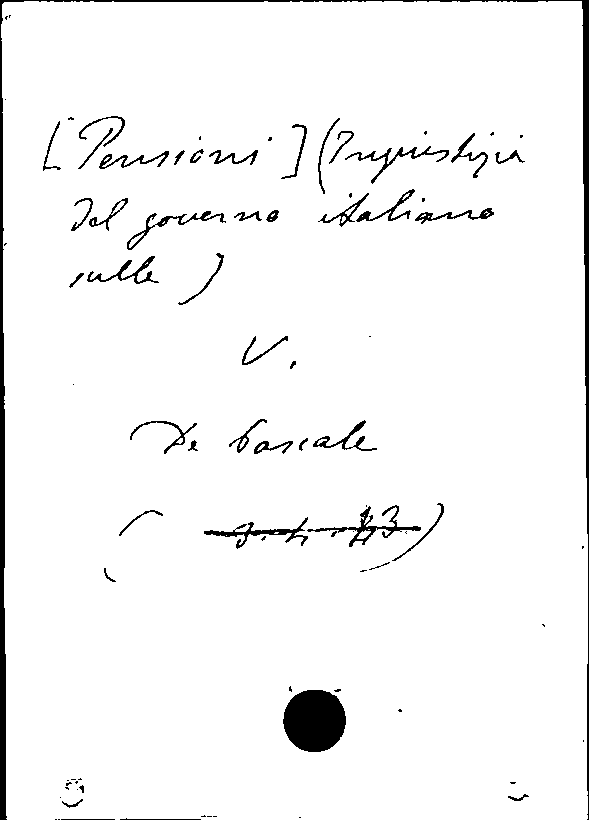 [Pensioni] (Ingiustizia
del governo italiano
sulle)
V.
De Pascale
(3.4.43)